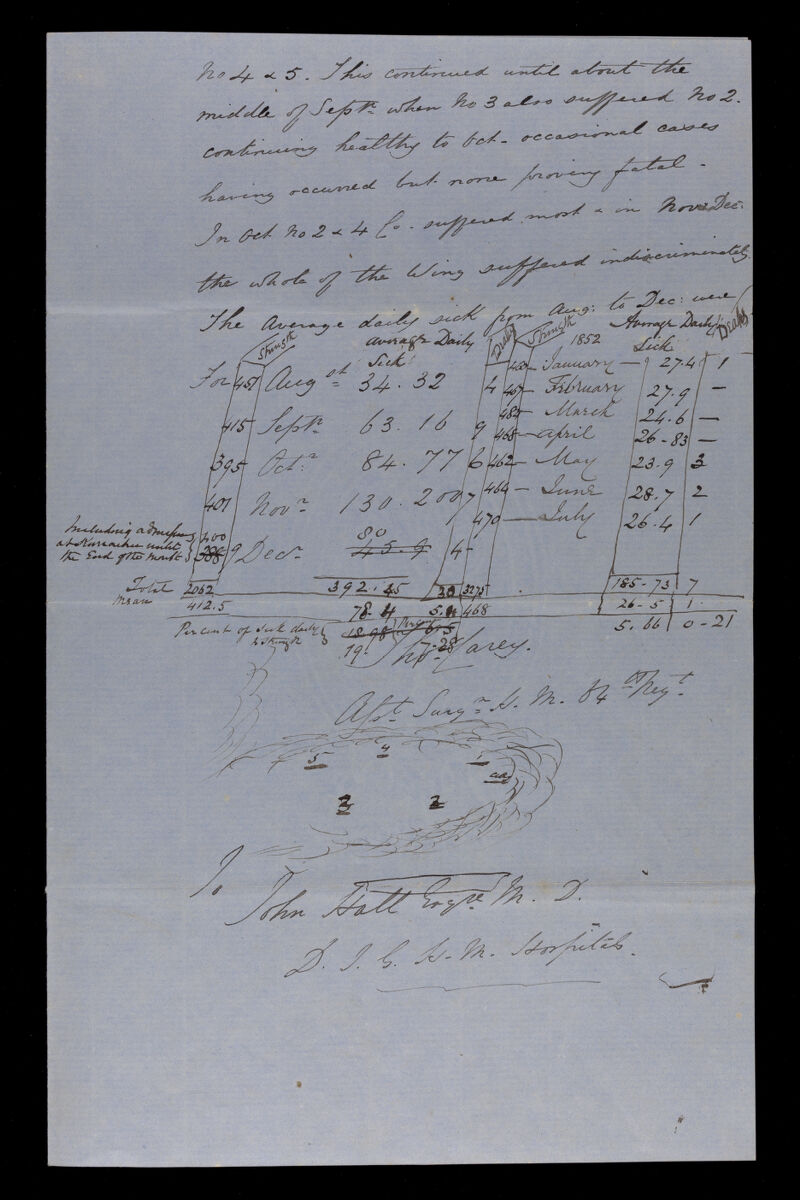 No 4 & 5. This continued until about the
middle of Septr. when No 3 also suffered No 2.
continuing healthy to Oct - occasional cases
having occurred but none proving fatal -
In Oct No 2 & 4 Co. suffered most & in Nov & Dec:
the whole of the Wing suffered indiscriminately
The Average daily sick from Aug: to Dec: were
Strength Average Daily Sick Deaths Strength 1852 Average Daily Sick Deaths
For 457 August 34.32 4
January 27.4 1
467 February 27.9 -
415 Septr. 63.16 9
482 March 24.6 -
468 April 26-83 -
395 Octr. 84.77 6
462 May 23.9 3
401 Novr. 130.200 7
464 June 28.7 2
470 July 26.4 1
Including admissions
at Kurrachee until
the End of the month
400
388 9 Decr. 80 45.9 4
Total 2062 392.45 30 3275 185-73 7
Mean 412.5 78.4 468 26-5 1
Per cent of sick daily & Strength 18.98 19. 7.28 5.66 0-21
Thos. Carey.
Asst. Surgn. H. M. 64th Regt.
5 4 1
3 2
To
John Hall Esqre. M. D.
D. I. G. H. M. Hospitals.